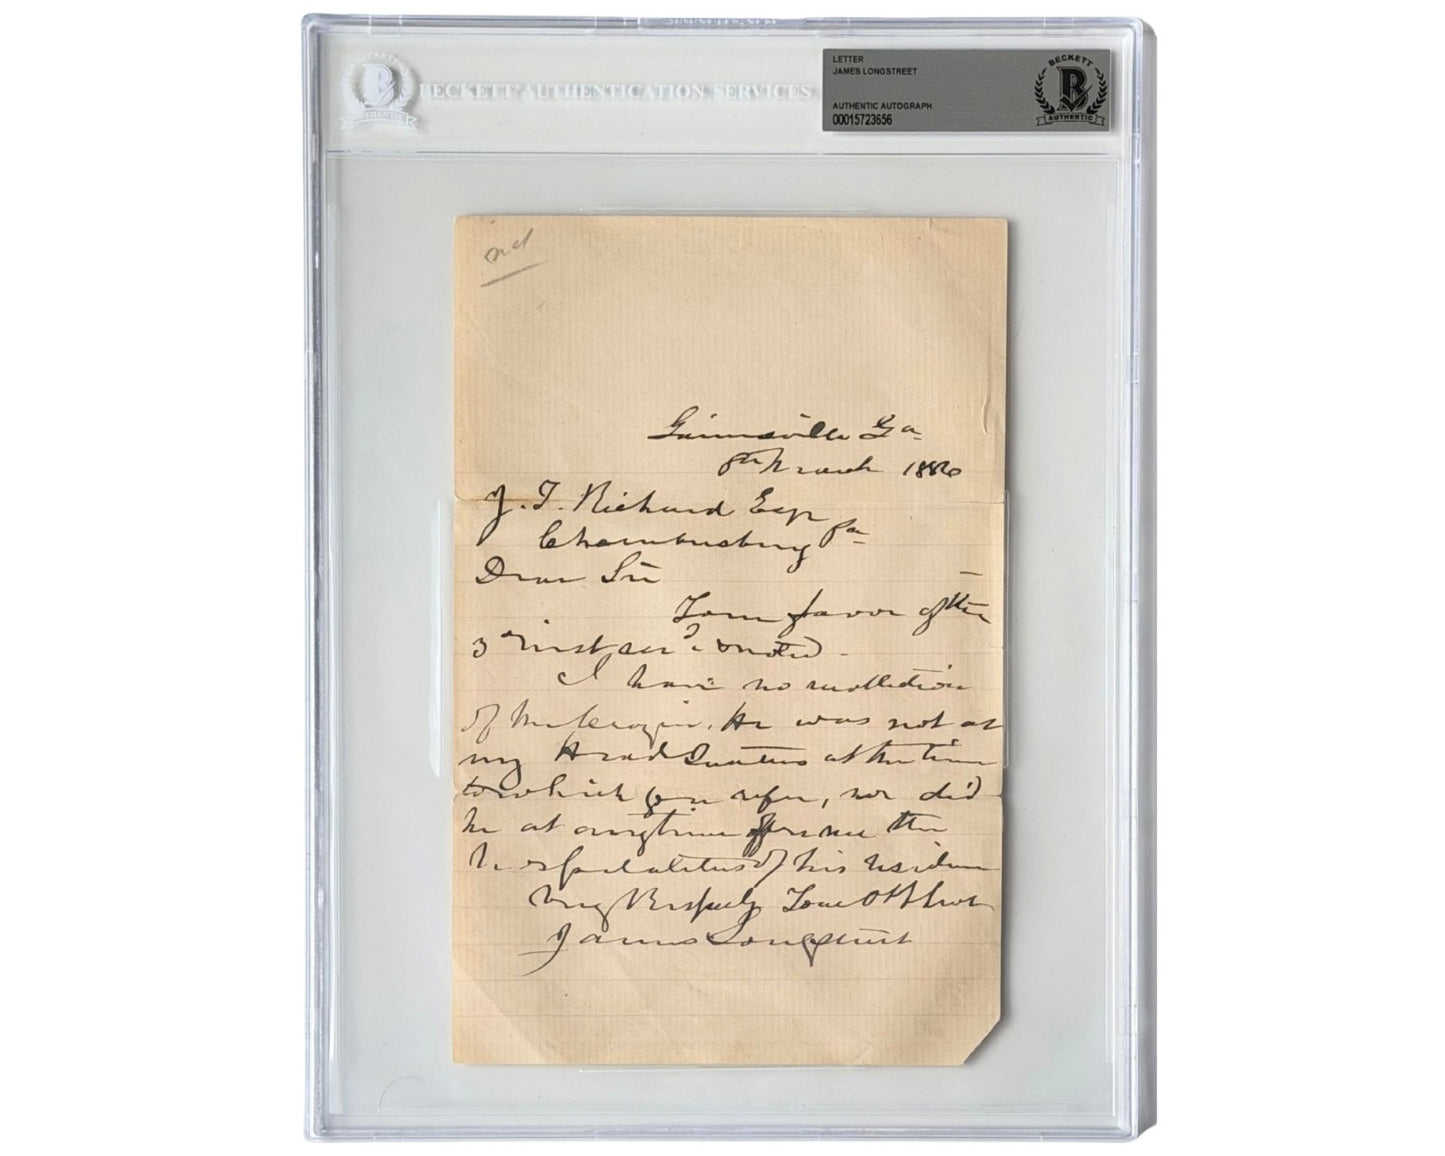 BECKETT AUTHENTICATION SERVICES
AUTHENTIC
LETTER
JAMES LONGSTREET
AUTHENTIC AUTOGRAPH
00015723656
BECKETT
B
AUTHENTIC
Gainesville Ga
8th March 1886
J. T. Richard Esqr
Chambersburg Pa
Dear Sir
Your favor of the
3rd inst recd & noted.
I have no recollection
of He was not at
my Head Quarters at the time
to which you refer, nor did
he at any time offer me the
hospitalities of his residence
Very Respectfully Your Obt Svt
James Longstreet